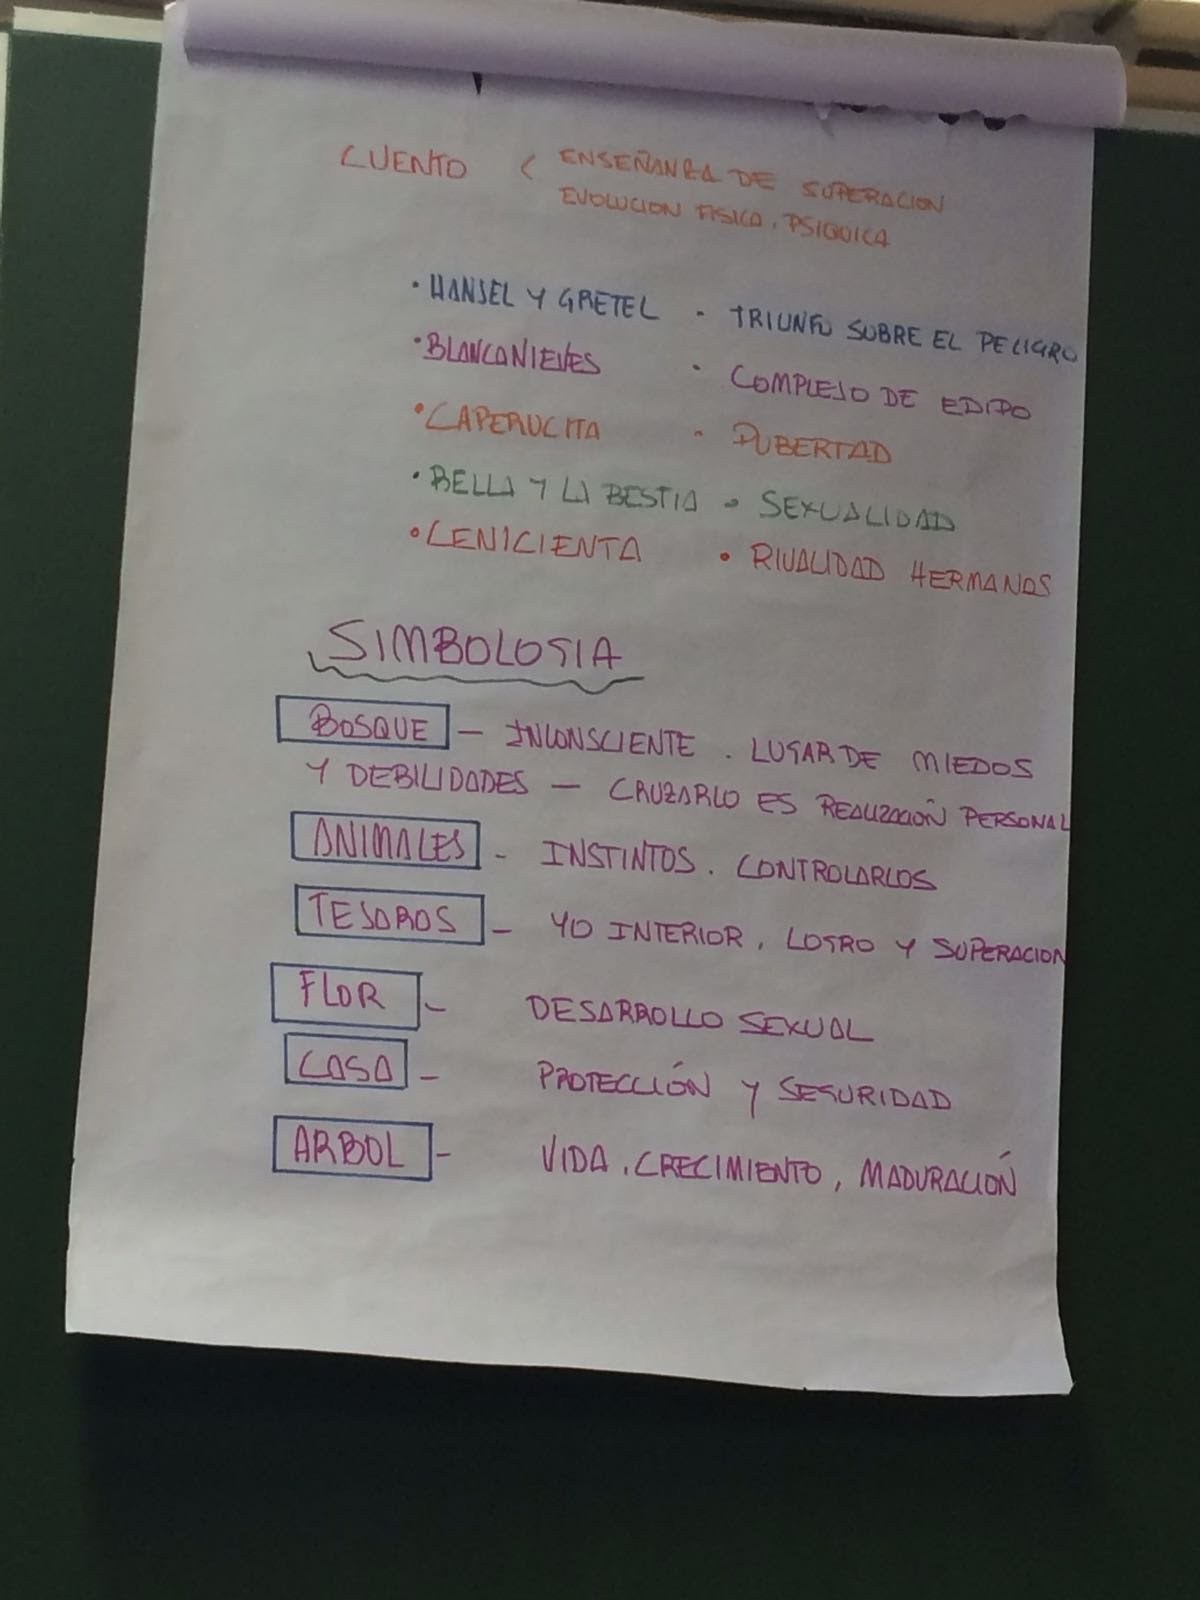 CUENTO < ENSEÑANZA DE SUPERACION
EVOLUCION FISICA, PSIQUICA
• HANSEL Y GRETEL - TRIUNFO SOBRE EL PELIGRO
• BLANCANIEVES - COMPLEJO DE EDIPO
• CAPERUCITA - PUBERTAD
• BELLA Y LA BESTIA - SEXUALIDAD
• CENICIENTA • RIVALIDAD HERMANOS
SIMBOLOGIA
BOSQUE — INCONSCIENTE. LUGAR DE MIEDOS
Y DEBILIDADES — CRUZARLO ES REALIZACIÓN PERSONAL
ANIMALES - INSTINTOS. CONTROLARLOS
TESOROS - YO INTERIOR, LOGRO Y SUPERACION
FLOR - DESARROLLO SEXUAL
CASA - PROTECCIÓN Y SEGURIDAD
ARBOL - VIDA, CRECIMIENTO, MADURACIÓN